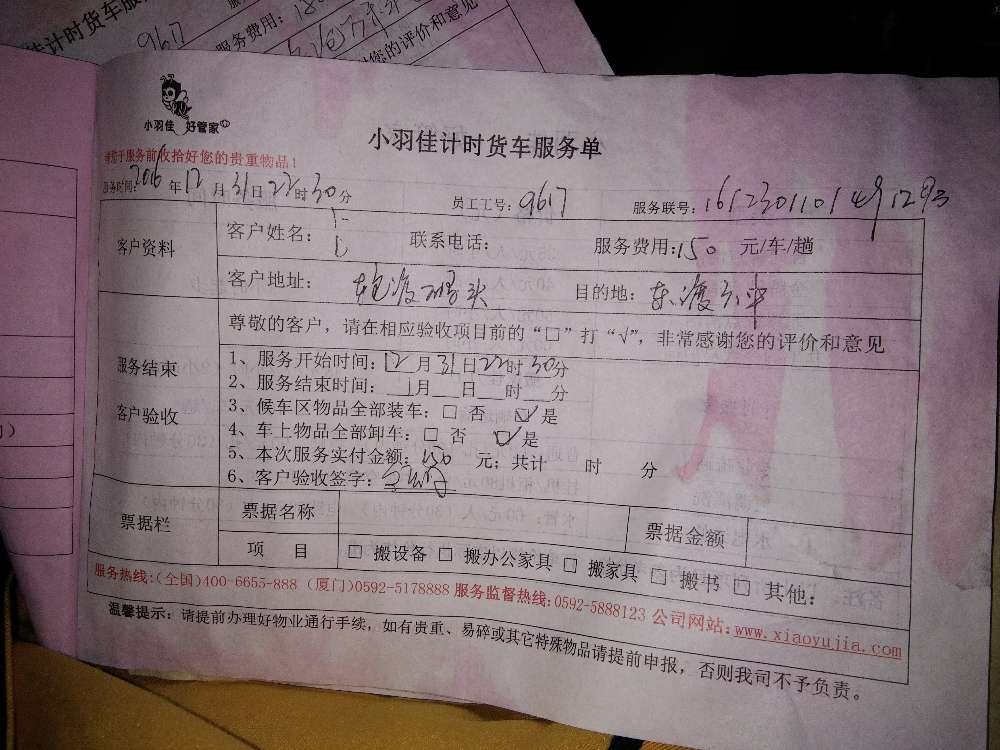 计时货车服务
967
服务费用:
您的评价和意见
小羽佳 好管家
小羽佳计时货车服务单
请您于服务前收拾好您的贵重物品!
服务时间:2016年12月31日22时30分 员工工号:9617 服务联号:
客户资料 客户姓名: 联系电话: 服务费用:150 元/车/趟
客户地址: 码头 目的地:东渡
尊敬的客户，请在相应验收项目前的“□”打“√”，非常感谢您的评价和意见
服务结束
客户验收
1、服务开始时间:12月31日22时30分
2、服务结束时间:__月__日__时__分
3、候车区物品全部装车:□ 否 ☑是
4、车上物品全部卸车:□ 否 ☑是
5、本次服务实付金额:150 元;共计 时 分
6、客户验收签字:
票据栏 票据名称 票据金额
项 目 □ 搬设备 □ 搬办公家具 □ 搬家具 □ 搬书 □ 其他:
服务热线:(全国)400-6655-888 (厦门)0592-5178888 服务监督热线:0592-5888123 公司网站:www.xiaoyujia.com
温馨提示:请提前办理好物业通行手续，如有贵重、易碎或其它特殊物品请提前申报，否则我司不予负责。